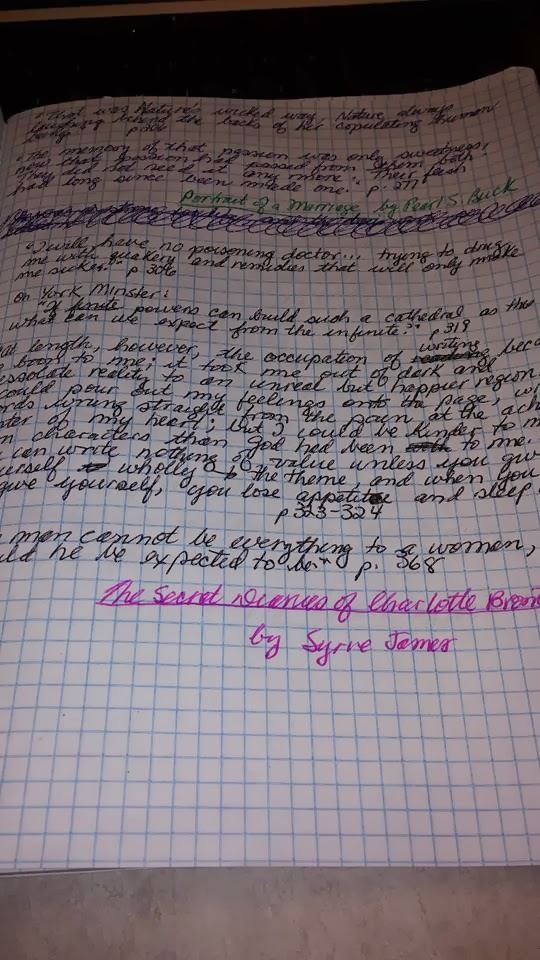 "That was Nature's wicked way, Nature always
laughing behind the backs of her copulating human
beings." p 206
"The memory of that passion was only sweetness,
now that passion had passed from them both.
They did not need it any more. Their flesh
had long since been made one." p. 271
Portrait of a Marriage by Pearl S. Buck
"I will have no poisoning doctor... trying to drug
me with quakery and remidies that will only make
me sicker." p 306
On York Minster:
"If finite powers can build such a cathedral as this
what can we expect from the infinite?" p 319
at length, however, the occupation of writing beca
boon to me; it took me out of dark and
esolate reality to an unreal but happier region.
could pour out my feelings onto the page, wi
ords wrung straight from the pain at the ach
ter of my heart; but I could be kinder to m
n characters than God had been to me.
can write nothing of value unless you giv
erself wholly to the theme, and when you
give yourself, you lose appetite and sleep
p 323-324
man cannot be everything to a women,
uld he be expected to be" p. 368
The Secret Diaries of Charlotte Bron
by Syrie James